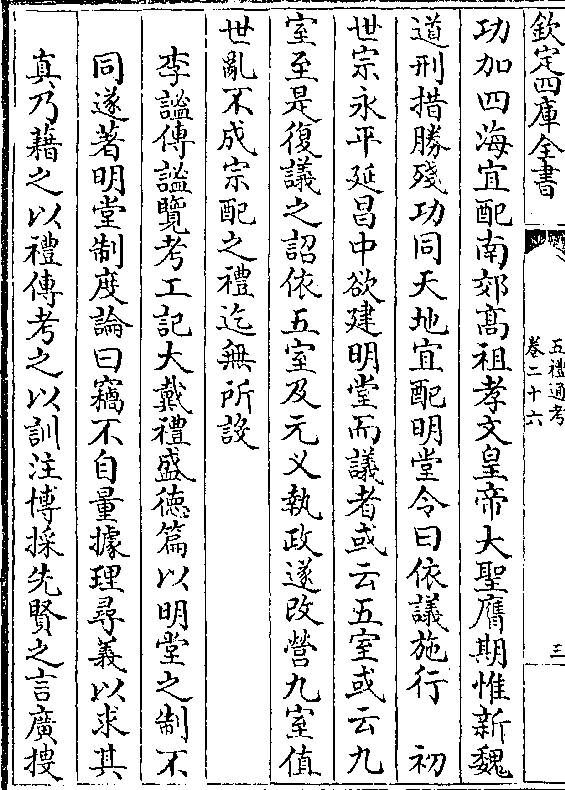 欽定四庫全書
五禮通考
卷二十六
三
功加四海宜配南郊髙祖孝文皇帝大聖膺期惟新魏
道刑措勝殘功同天地宜配明堂令曰依議施行　初
世宗永平延昌中欲建明堂而議者或云五室或云九
室至是復議之詔依五室及元义執政遂改營九室值
世亂不成宗配之禮迄無所設
李謐傳謐覽考工記大戴禮盛徳篇以明堂之制不
同遂著明堂制度論曰竊不自量據理尋義以求其
真乃藉之以禮傳考之以訓注博採先賢之言廣搜